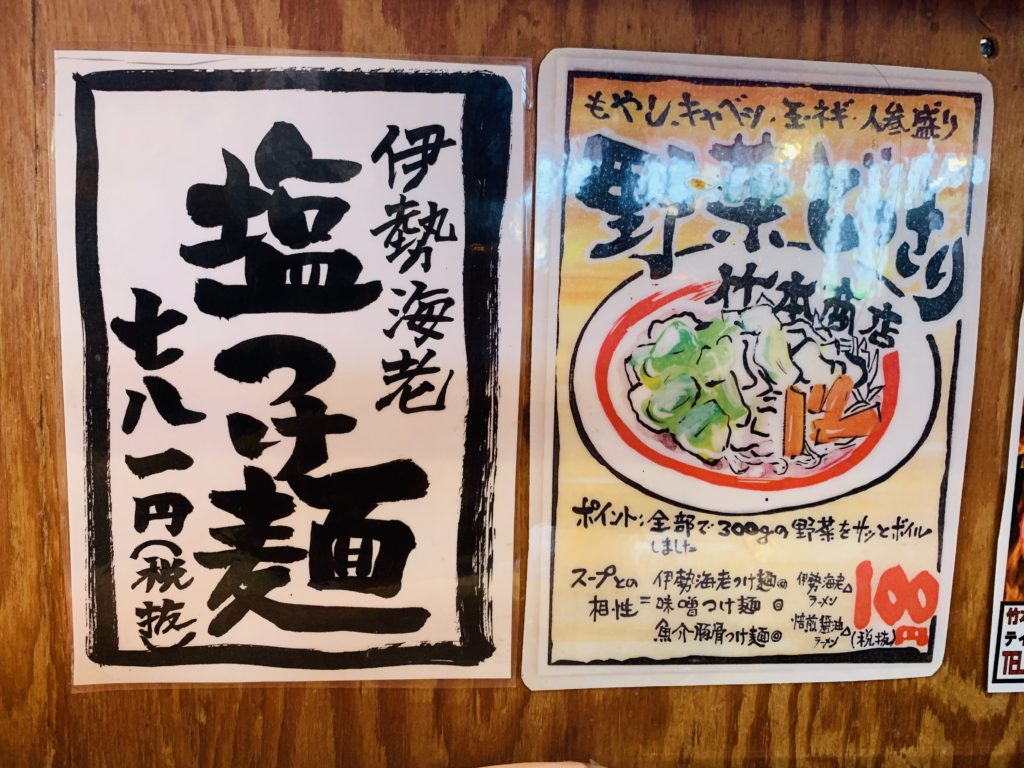 伊勢海老
塩つけ麺
七八一円(税抜)
もやし、キャベツ・玉ネギ・人参盛り
野菜どっさり
竹本商店
ポイント:全部で300gの野菜をサッとボイル
しました
スープとの
相性=
伊勢海老つけ麺◎
味噌つけ麺 ◎
魚介豚骨つけ麺◎
伊勢海老△
ラーメン
焙煎醤油△
ラーメン
(税抜)
100円
竹
テイ
TEL